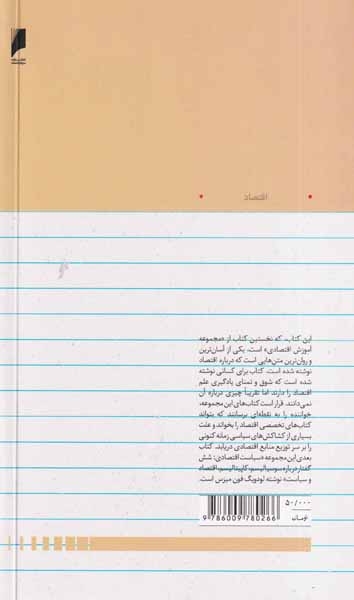 اقتصاد
این کتاب، که نخستین کتاب از «مجموعه
آموزش اقتصادی» است، یکی از آسان‌ترین
و روان‌ترین متن‌هایی است که درباره اقتصاد
نوشته شده است. کتاب برای کسانی نوشته
شده است که شوق و تمنای یادگیری علم
اقتصاد را دارند اما تقریباً چیزی درباره آن
نمی‌دانند. قرار است کتاب‌های این مجموعه،
خواننده را به نقطه‌ای برسانند که بتواند
کتاب‌های تخصصی اقتصاد را بخواند و علت
بسیاری از کشاکش‌های سیاسی زمانه کنونی
را بر سر توزیع منابع اقتصادی دریابد. کتاب
بعدی این مجموعه «سیاست اقتصادی: شش
گفتار درباره سوسیالیسم، کاپیتالیسم، اقتصاد
و سیاست» نوشته لودویگ فون میزس است.
۵۰/۰۰۰
تومان
9 786009 780266